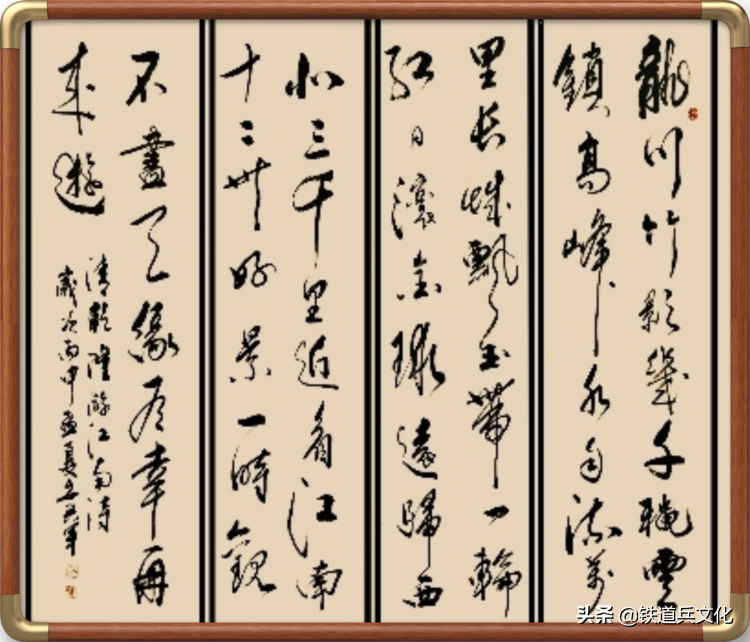 龍川竹影幾千穐雲
鎖高峰水自流萬
里長城飄玉帶一輪
紅日滾金球遠歸西
北三千里近看江南
十二州好景一時觀
不盡天緣有幸再
來遊
清乾隆游江南詩
歲次丙申孟夏
头条 @铁道兵文化